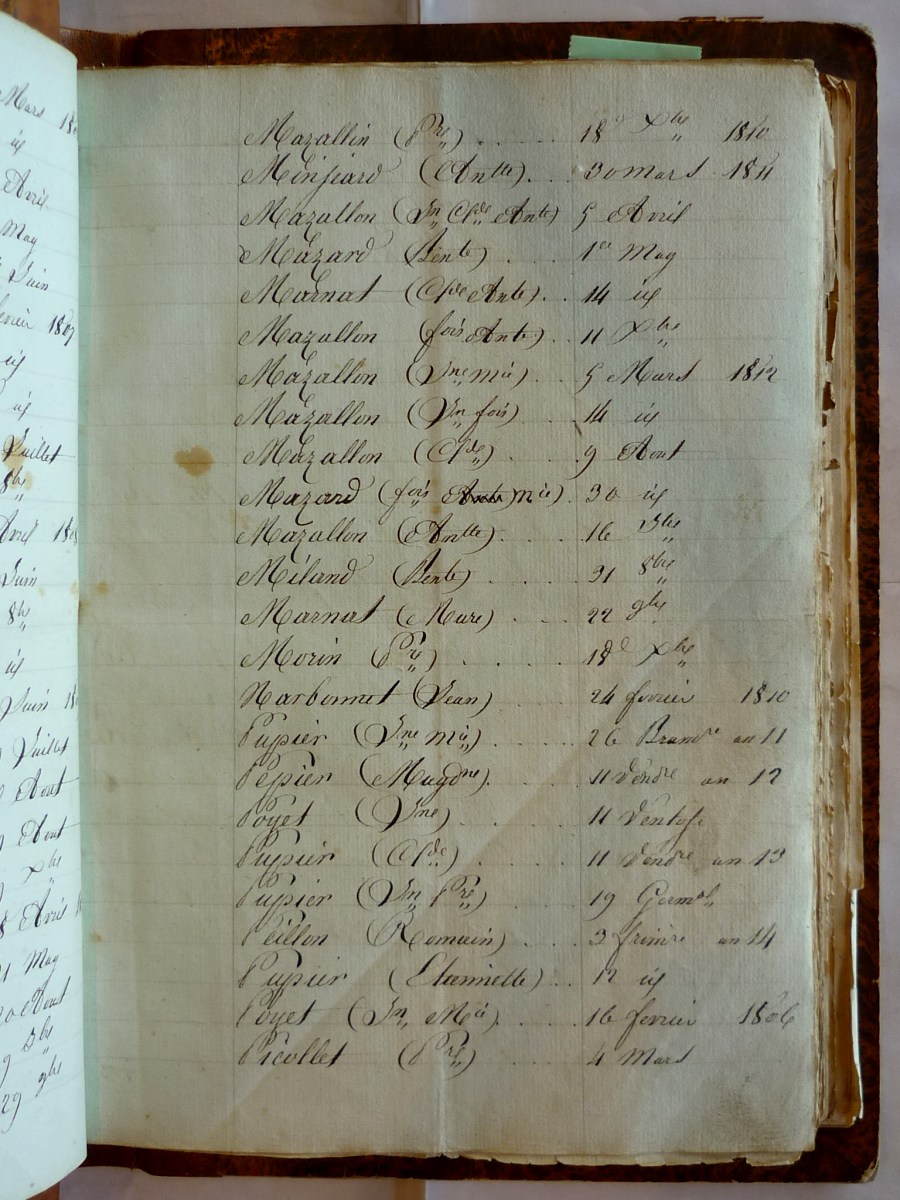 Mars 18
id
Avril
May
Juin
fevrier 1807
id
id
Juillet
8bre
Avril 180
Juin
8bre
id
Juin 18
Juillet
Aout
Aout
Xbre
8 Avril
21 May
Aout
9 3bre
29 9bre
Mazallin (Pre) 18 Xbre 1810
Minjiard (Antte) 30 mars 1811
Mazallon (Jn Clde Ante) 5 Avril
Mazard (Bente) 1er May
Marnat (Clde Ante) 14 id
Mazallon (fois Ante) 11 Xbre
Mazallon (Jne mie) 5 Mars 1812
Mazallon (Jn fois) 14 id
Mazallon (Clde) 9 Aout
Mazard (fois mie) 30 id
Mazallon (Antte) 16 7bre
Miland (Bente) 31 8bre
Marnat (Mare) 22 9bre
Morin (Pre) 18 Xbre
Narbonnet (Jean) 24 fevrier 1810
Pupier (Jne mie) 26 Brumre an 11
Pepier (Magdne) 11 Vendre an 12
Poyet (Jne) 11 Ventose
Pupier (Clde) 11 Vendre an 13
Pupier (Jn Pre) 19 Germal
Peillon (Romain) 3 frimre an 14
Pupier (Etiennette) 12 id
Poyet (Jn Mie) 16 fevrier 1806
Picollet (Pre) 4 Mars